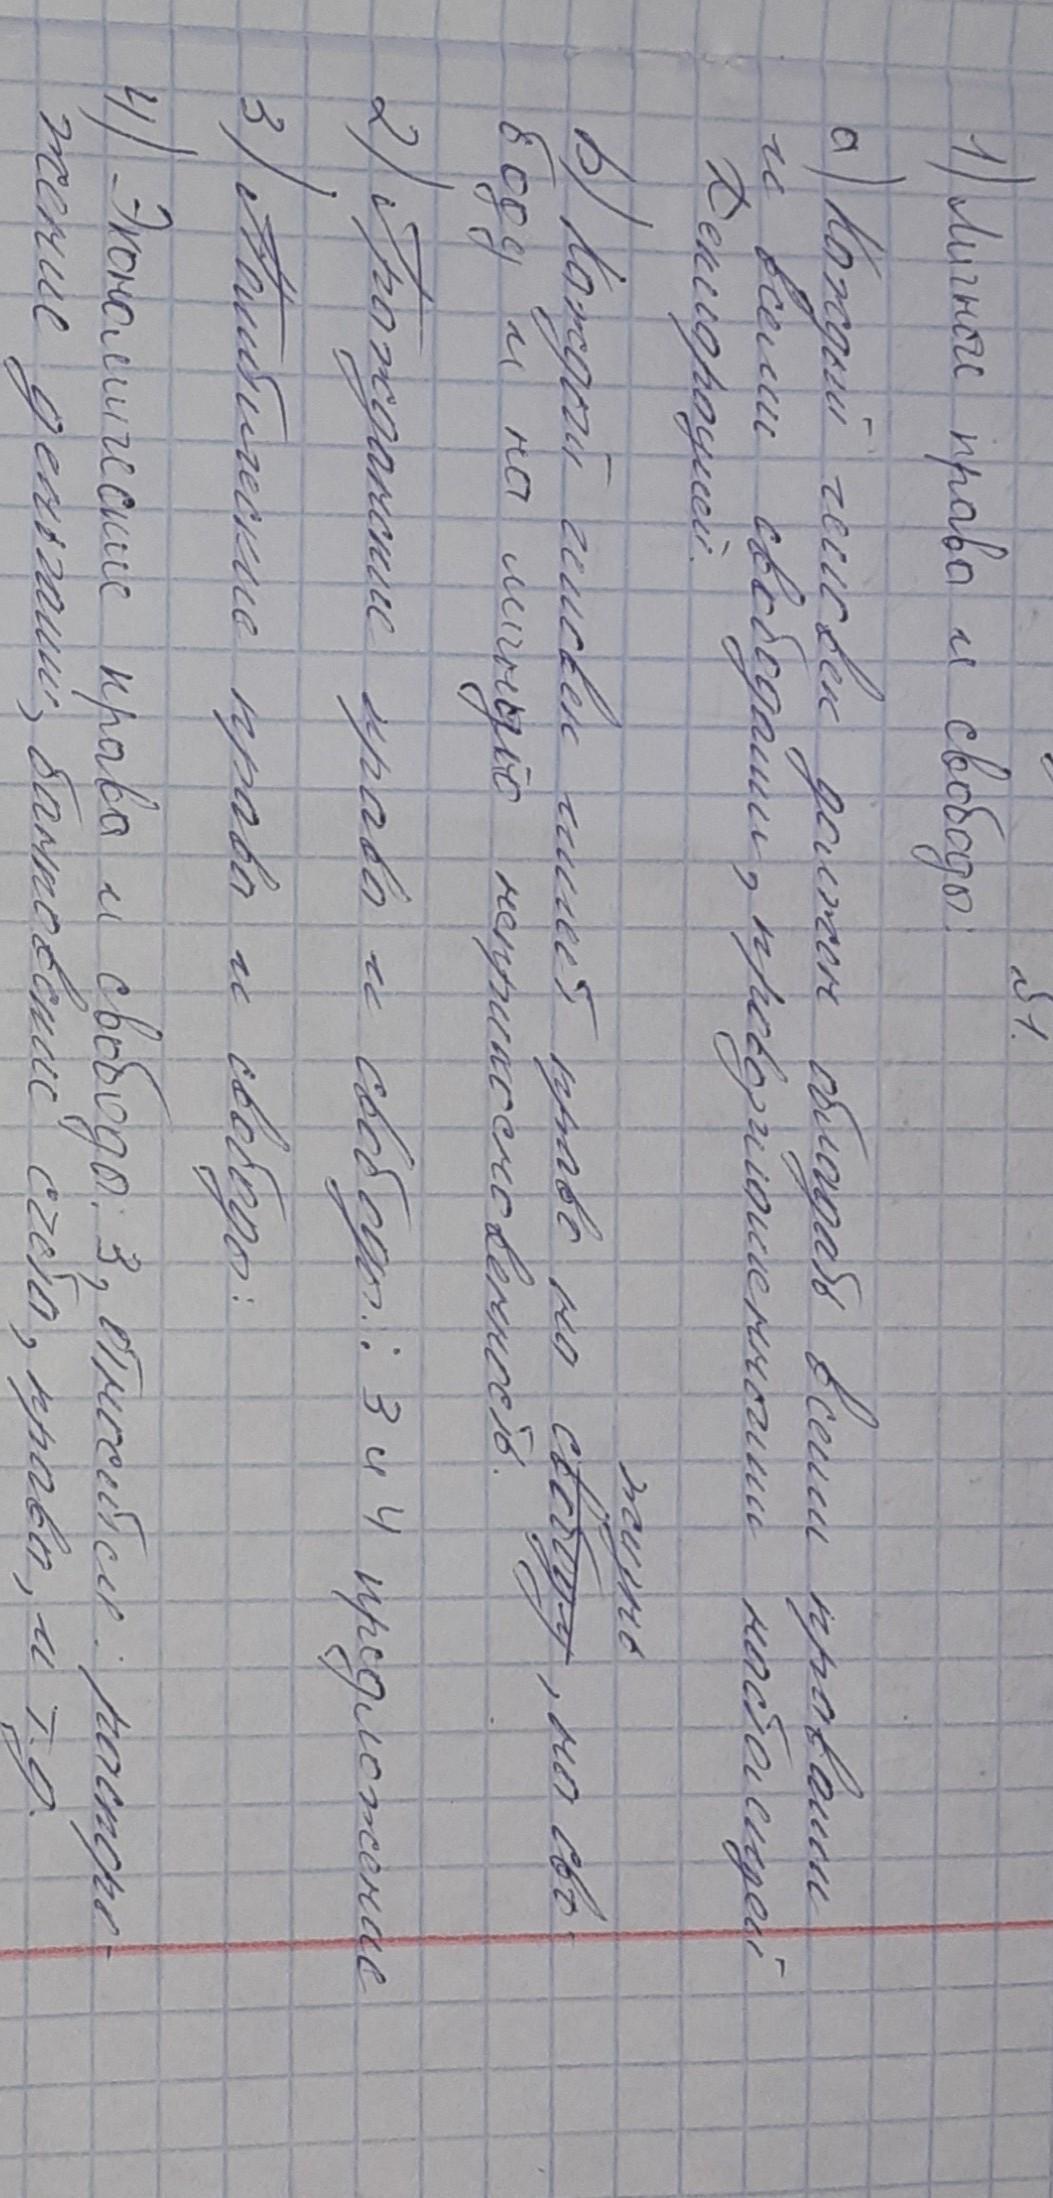 §1.
1) Личные права и свободы:
а) Каждый человек должен обладать всеми правами
и всеми свободами, провозглашенными настоящей
Декларацией.
в) Каждый человек имеет право на жизнь, на сво-
боду и на личную неприкосновенность.
2) Гражданские права и свободы: 3 и 4 предложение
3) Политические права и свободы:
4) Экономические права и свободы: 3, относится: распоря-
жение деньгами, банковские счета, права, и т.д.